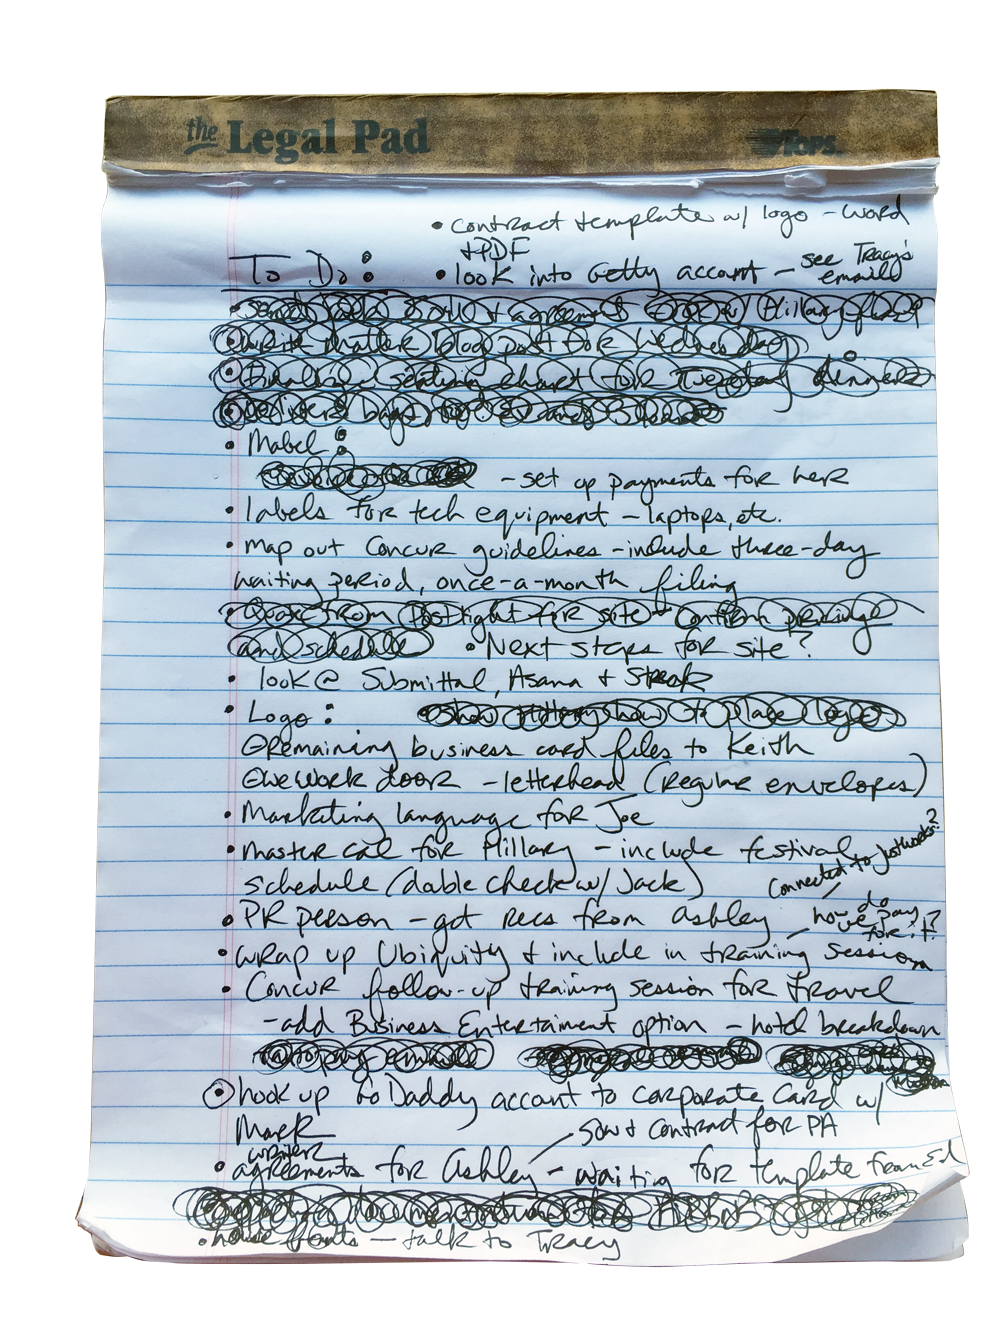 the Legal Pad TOPS
• contract template w/ logo - word
+ PDF
To Do:
• look into Getty account - see Tracy's
email
• write matter blog post for Wednesday
• Finalize seating chart for Tuesday dinner
• Mabel:
- set up payments for her
• labels for tech equipment - laptops, etc.
• map out Concur guidelines - include three-day
waiting period, once-a-month filing
• Quote from Postlight for site - confirm pricing
and schedule • Next steps for site?
• look @ Submittal, Asana +
• Logo: show Hillary how to place logo
Remaining business card files to Keith
WeWork door - letterhead (regular envelopes)
• Marketing language for Joe
• master cal for Hillary - include festival
schedule (double check w/ Jack)
connected to Justworks?
• PR person - got recs from Ashley
- how do
we pay
for it?
• wrap up Ubiquity + include in training session
• Concur follow-up training session for travel
- add Business Entertaiment option - hotel breakdown
• hook up Go Daddy account to corporate card w/
Mark
SOW + contract for PA
writer
• agreements for Ashley - waiting for template from Ed
• house fonts - talk to Tracy